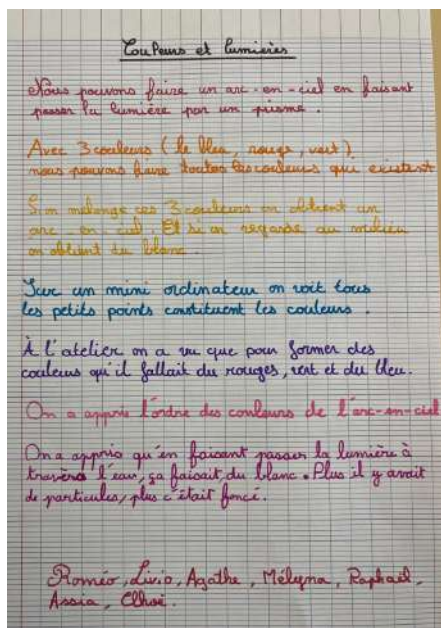 Couleurs et lumières
Nous pouvons faire un arc-en-ciel en faisant
passer la lumière par un prisme.
Avec 3 couleurs (le bleu, rouge, vert)
nous pouvons faire toutes les couleurs qui existent
Si on mélange ces 3 couleurs on obtient un
arc-en-ciel. Et si on regarde au milieu
on obtient du blanc.
Sur un mini ordinateur on voit tous
les petits points constituent les couleurs.
À l'atelier on a vu que pour former des
couleurs qu'il fallait du rouges, vert et du bleu.
On a appris l'ordre des couleurs de l'arc-en-ciel
On a appris qu'en faisant passer la lumière à
travers l'eau, ça faisait du blanc. Plus il y avait
de particules, plus c'était foncé.
Roméo, Livio, Agathe, Mélyna, Raphaël,
Assia, Chloé.